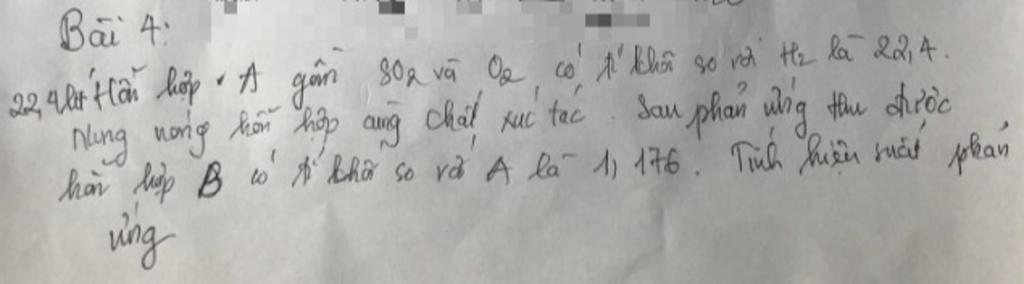 Bài 4:
22,4 lít Hỗn hợp A gồm SO2 và O2 có tỉ khối so với H2 là 22,4.
Nung nóng hỗn hợp cùng chất xúc tác. Sau phản ứng thu được
hỗn hợp B có tỉ khối so với A là 1,176. Tính hiệu suất phản
ứng